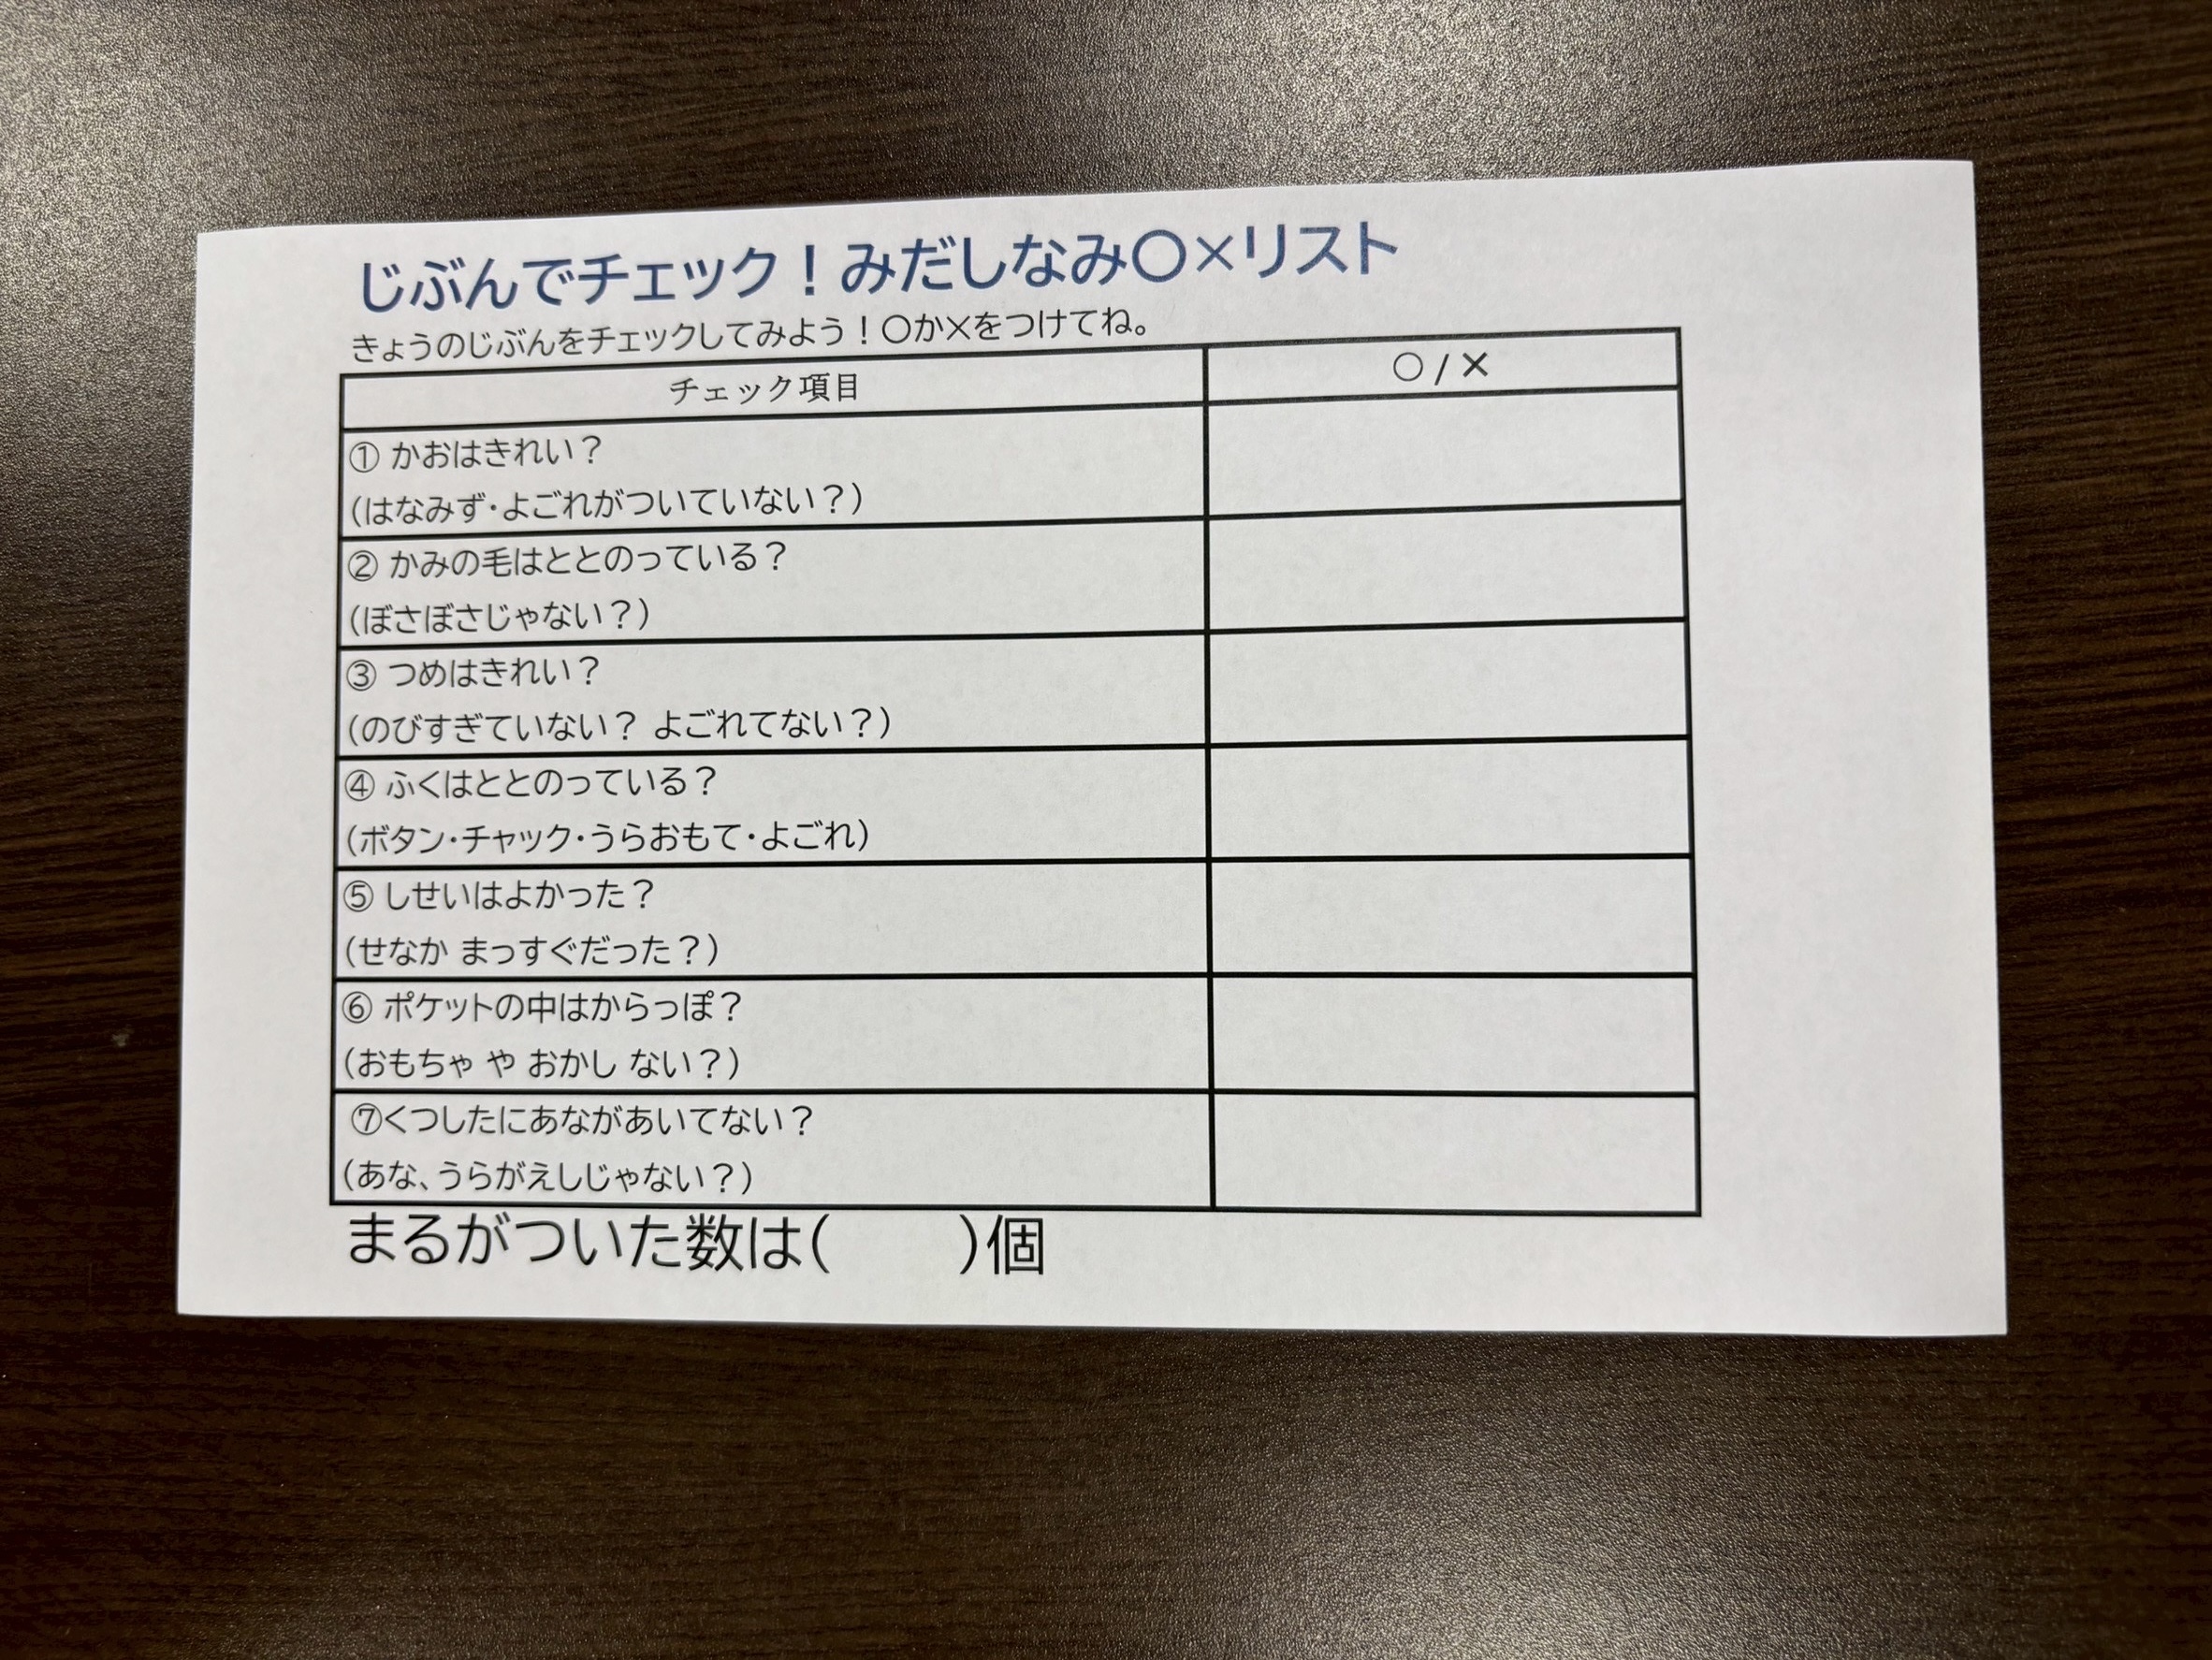 じぶんでチェック！みだしなみ〇×リスト
きょうのじぶんをチェックしてみよう！〇か×をつけてね。
チェック項目
〇 / ×
① かおはきれい？
(はなみず・よごれがついていない？)
② かみの毛はととのっている？
(ぼさぼさじゃない？)
③ つめはきれい？
(のびすぎていない？ よごれてない？)
④ ふくはととのっている？
(ボタン・チャック・うらおもて・よごれ)
⑤ しせいはよかった？
(せなか まっすぐだった？)
⑥ ポケットの中はからっぽ？
(おもちゃ や おかし ない？)
⑦くつしたにあながあいてない？
(あな、うらがえしじゃない？)
まるがついた数は(　　)個